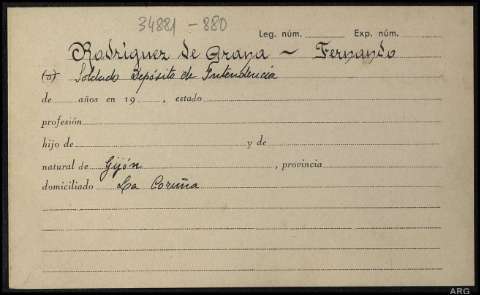 34881-880
Leg. núm. Exp. núm.
Rodríguez de Grana - Fernando
(a) Soldado Depósito de Intendencia
de años en 19 , estado
profesión
hijo de y de
natural de Gijón , provincia
domiciliado La Coruña
ARG